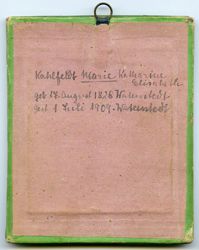 Kahlfeldt Marie Katharine
Elisabeth
geb 18. August 1826 Watenstedt
gest 1 Juli 1909. Watenstedt